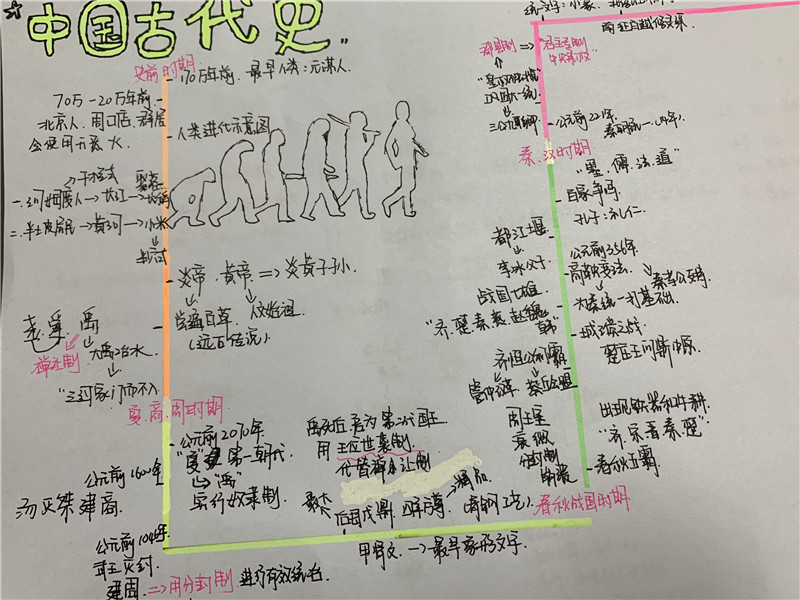 中国古代史
史前时期
170万年前,最早人类:元谋人
70万-20万年前
北京人,周口店,群居
会使用天然火
人类进化示意图
干栏式
一、河姆渡人→长江→水稻
二、半坡居民→黄河→小米
炎帝 黄帝⇒炎黄子孙
尝遍百草 人文始祖
(远古传说)
尧、舜、禹
禅让制
大禹治水
"三过家门而不入
夏、商、周时期
公元前2070年
"夏" 第一朝代
实行奴隶制
公元前1600年
汤灭桀建商
公元前1046年
武王灭纣
建周⇒用分封制,进行有效统治
禹死后,启为第二代国王
用王位世袭制
代替禅让制
最大
后母戊鼎 四羊方尊
(青铜工艺)
甲骨文→最早象形文字
春秋战国时期
春秋五霸
"齐宋晋秦楚"
出现铁器和牛耕
周王室
衰微
分封制
齐桓公称霸
管仲改革 葵丘会盟
城濮之战
楚庄王问鼎中原
战国七雄
"齐楚秦燕赵魏
韩"
都江堰
李冰父子
公元前356年
商鞅变法
秦孝公支持
为秦统一打基础
百家争鸣
孔子:礼、仁
"墨、儒、法、道"
秦、汉时期
公元前221年
郡县制
"君主专制
中央集权"